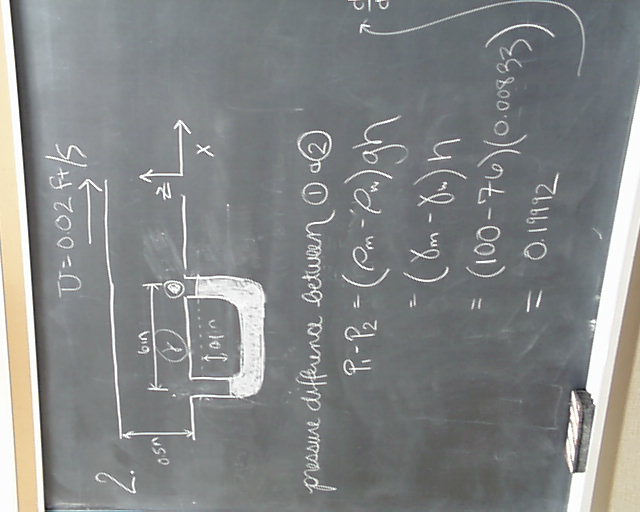 2.
U = 0.02 ft/s
0.5in
6in
γ
0.1in
z
x
pressure difference between ① & ②
P₁ - P₂ = (ρm - ρw)gh
= (γm - γw)h
= (100 - 76)(0.00833)
= 0.19992